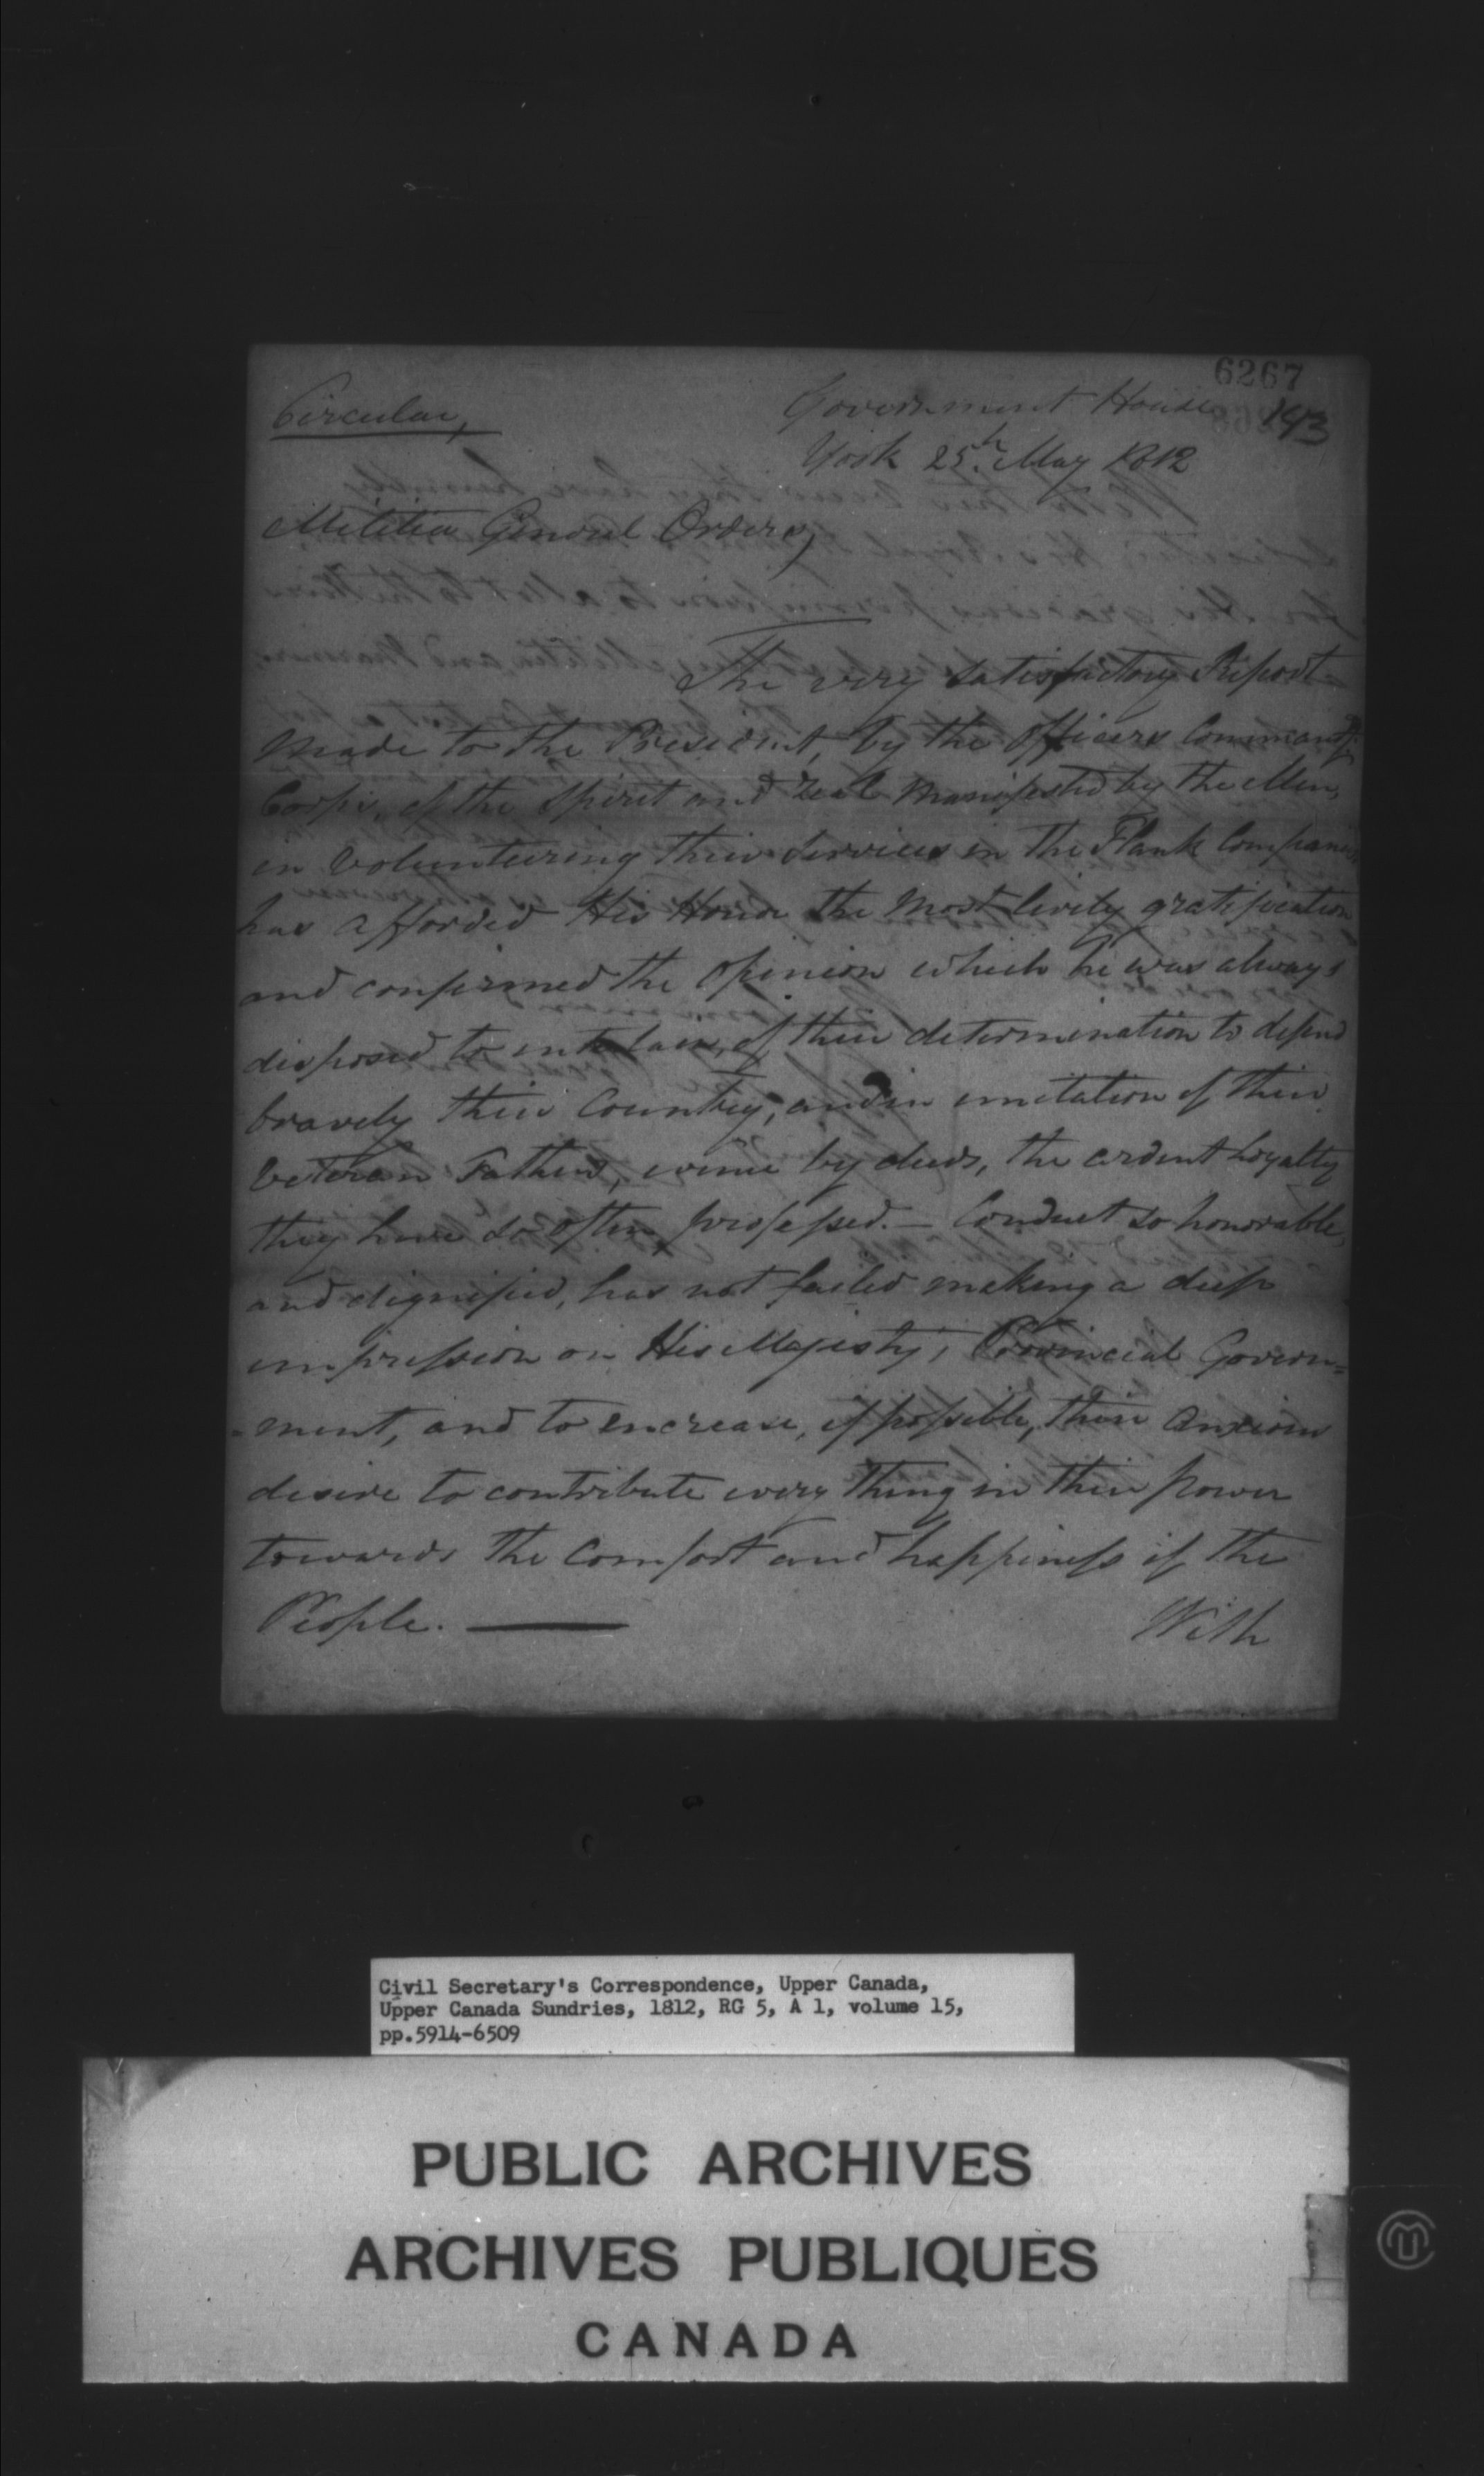 6267
193
Circular,
Government House
York 25th May 1812
Militia General Orders,
The very satisfactory Report
made to the President, by the Officers Commandg
Corps, of the Spirit and Zeal manifested by the Men,
in volunteering their services in the Flank Companies,
has afforded His Honor the most lively gratification
and confirmed the opinion which he was always
disposed to entertain, of their determination to defend
bravely their Country, and in imitation of their
veteran Fathers, evince by deeds, the ardent loyalty
they have so often professed. — Conduct so honorable,
and dignified, has not failed making a deep
impression on His Majesty's Provincial Govern=
=ment, and to encrease, if possible, their anxious
desire to contribute every thing in their power
towards the Comfort and happiness of the
People. —
With
Civil Secretary's Correspondence, Upper Canada,
Upper Canada Sundries, 1812, RG 5, A 1, volume 15,
pp.5914-6509
PUBLIC ARCHIVES
ARCHIVES PUBLIQUES
CANADA